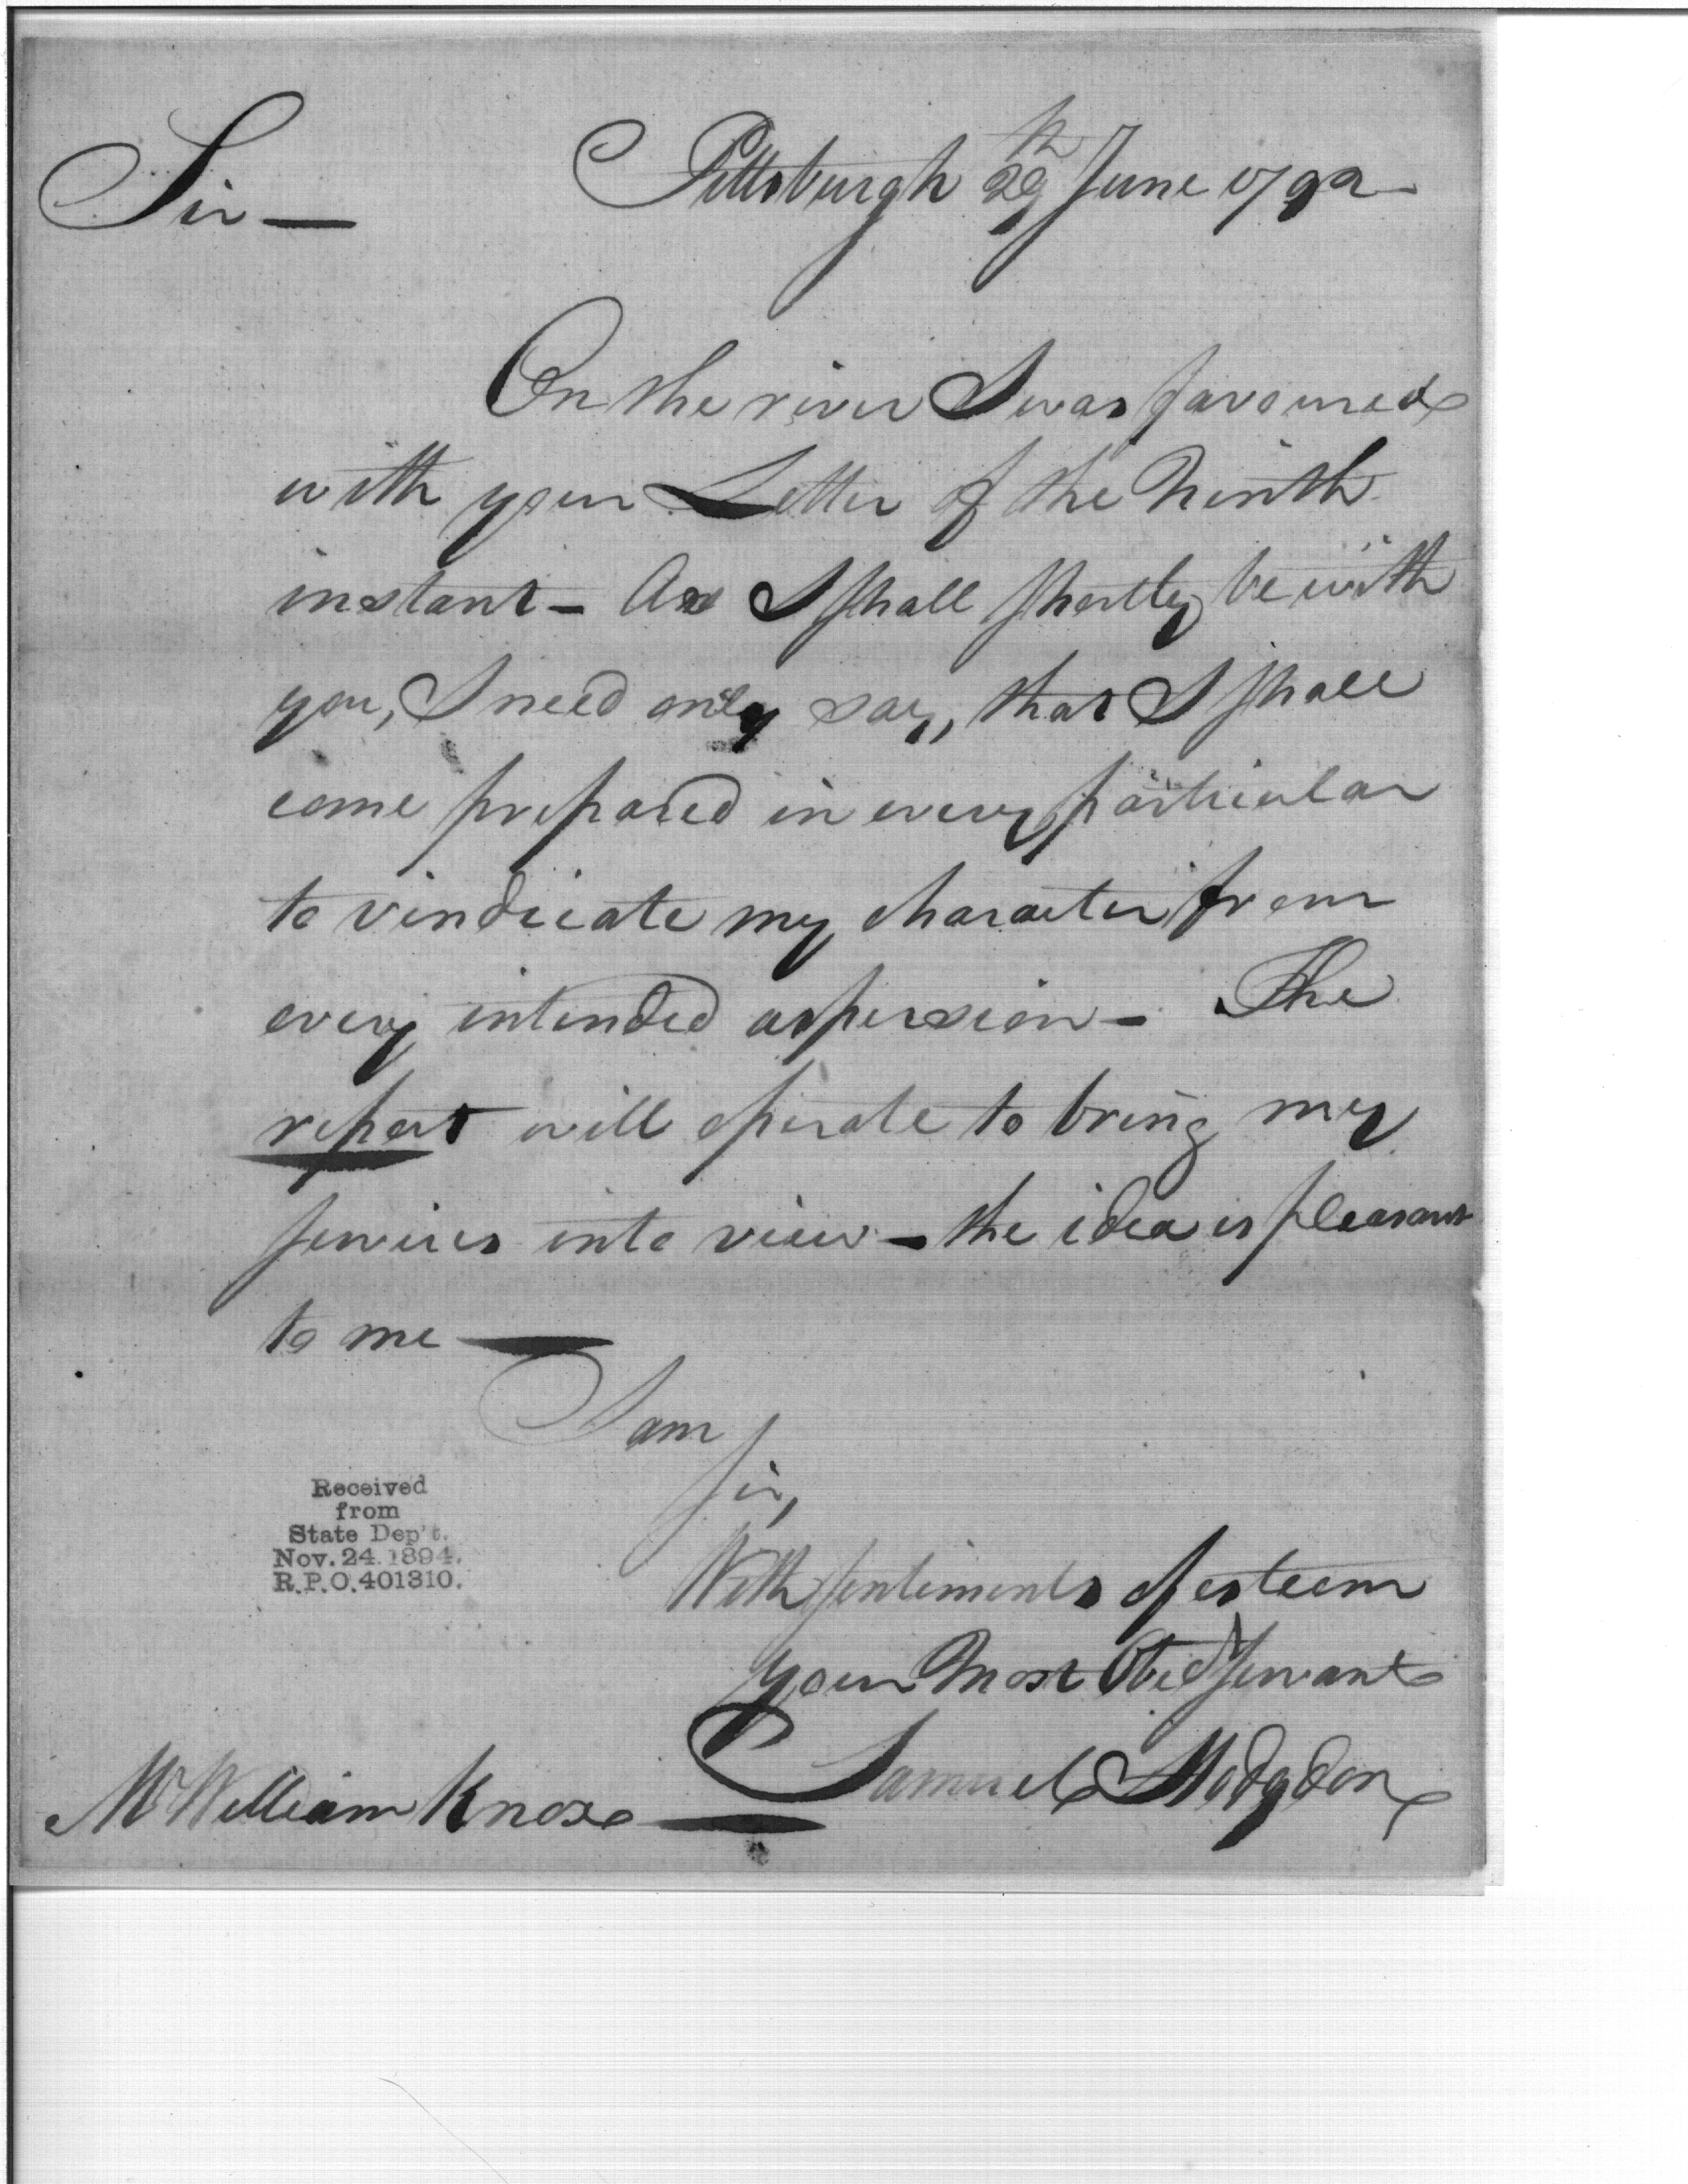 Sir — Pittsburgh 29th June 1792
On the river I was favoured
with your Letter of the Ninth
instant — As I shall shortly be with
you, I need only say, that I shall
come prepared in every particular
to vindicate my character from
every intended aspersion — The
report will operate to bring my
services into view — the idea is pleasant
to me —
I am
Sir,
With sentiments of esteem
your Most Obed Servant
Samuel Hodgdon
Mr William Knox —
Received
from
State Dep't.
Nov. 24. 1894.
R.P.O. 401310.